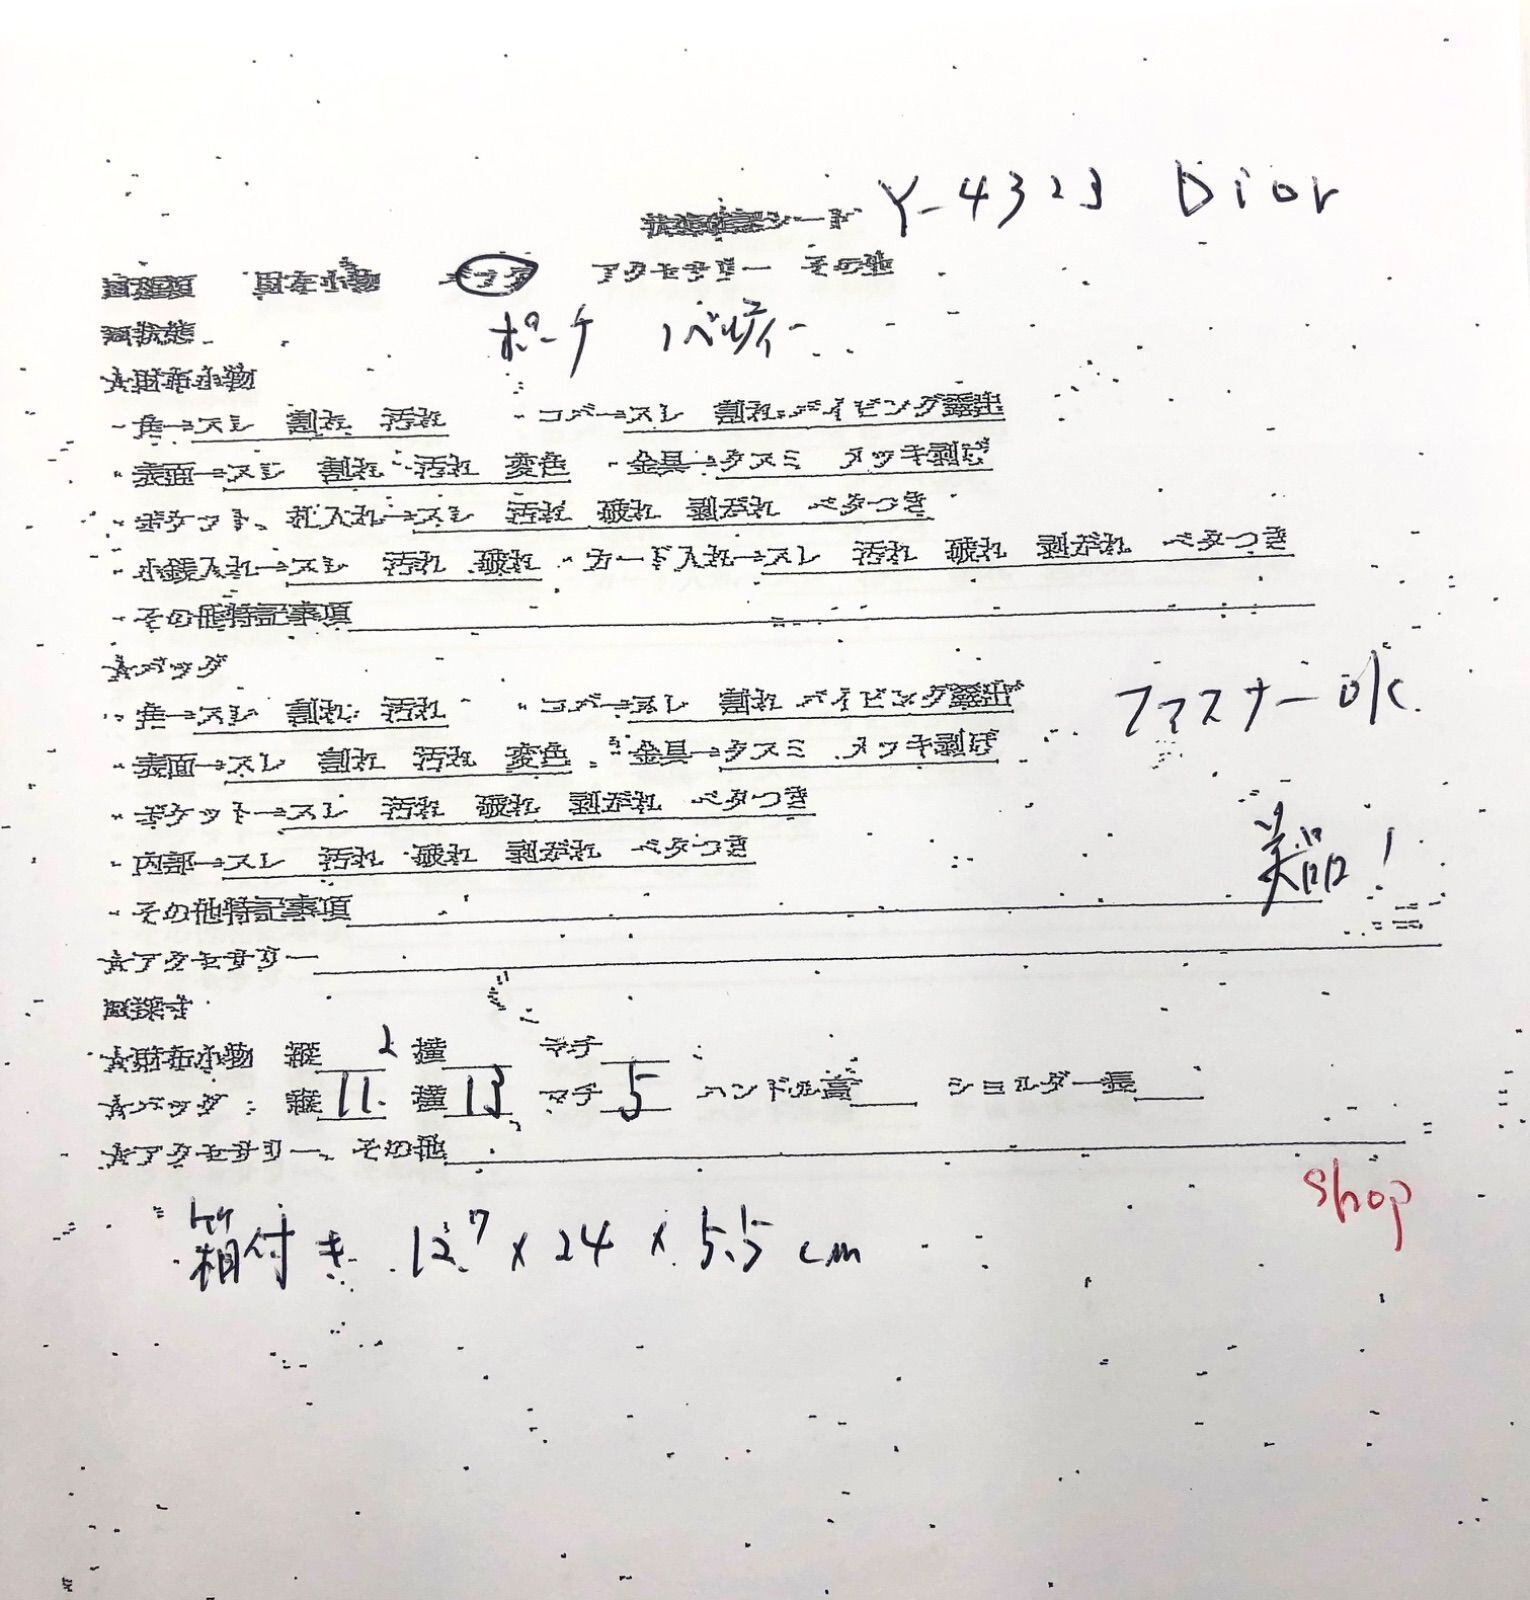 状態確認シート Y-4323 Dior
■種類 財布小物 バッグ アクセサリー その他
■状態 ポーチ ノベルティー
☆財布小物
・角→スレ 割れ 汚れ ・コバ→スレ 割れ パイピング露出
・表面→スレ 割れ 汚れ 変色 ・金具→クスミ メッキ剥げ
・ポケット、札入れ→スレ 汚れ 破れ 剥がれ ベタつき
・小銭入れ→スレ 汚れ 破れ ・カード入れ→スレ 汚れ 破れ 剥がれ ベタつき
・その他特記事項
☆バッグ
・角→スレ 割れ 汚れ ・コバ→スレ 割れ パイピング露出 ファスナーOK
・表面→スレ 割れ 汚れ 変色 ・金具→クスミ メッキ剥げ
・ポケット→スレ 汚れ 破れ 剥がれ ベタつき
・内部→スレ 汚れ 破れ 剥がれ ベタつき 美品!
・その他特記事項
☆アクセサリー
■採寸
☆財布小物 縦 横 マチ
☆バッグ 縦 11. 横 13 マチ 5 ハンドル高 ショルダー長
☆アクセサリー、その他
shop
箱付き 12.7 x 24 x 5.5 cm